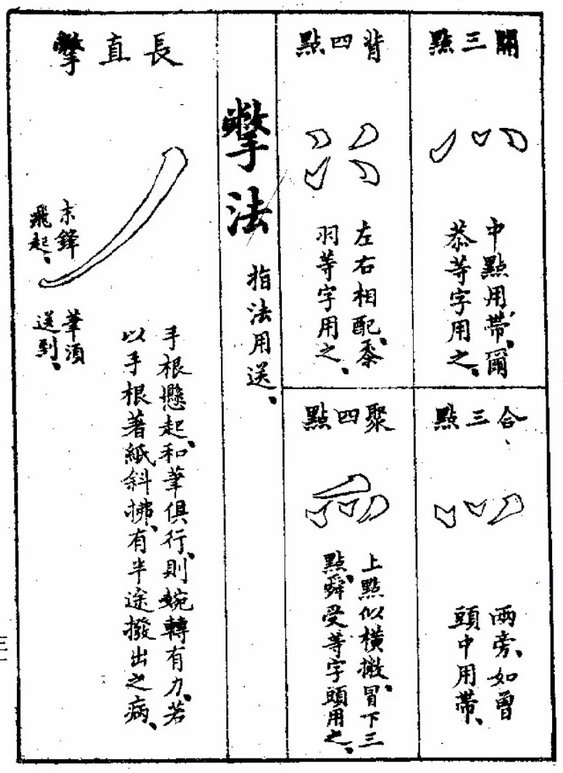 開三點
中點用帶、爾
恭等字用之、
合三點
兩旁、如曾
頭中用帶、
背四點
左右相配、黍
羽等字用之、
聚四點
上點似橫撇、冒下三
點、舜受等字頭用之、
撆法
指法用送、
長直撆
末鋒
飛起、
筆須
送到、
手根懸起、和筆俱行、則婉轉有力、若
以手根著紙斜拂、有半途撥出之病、